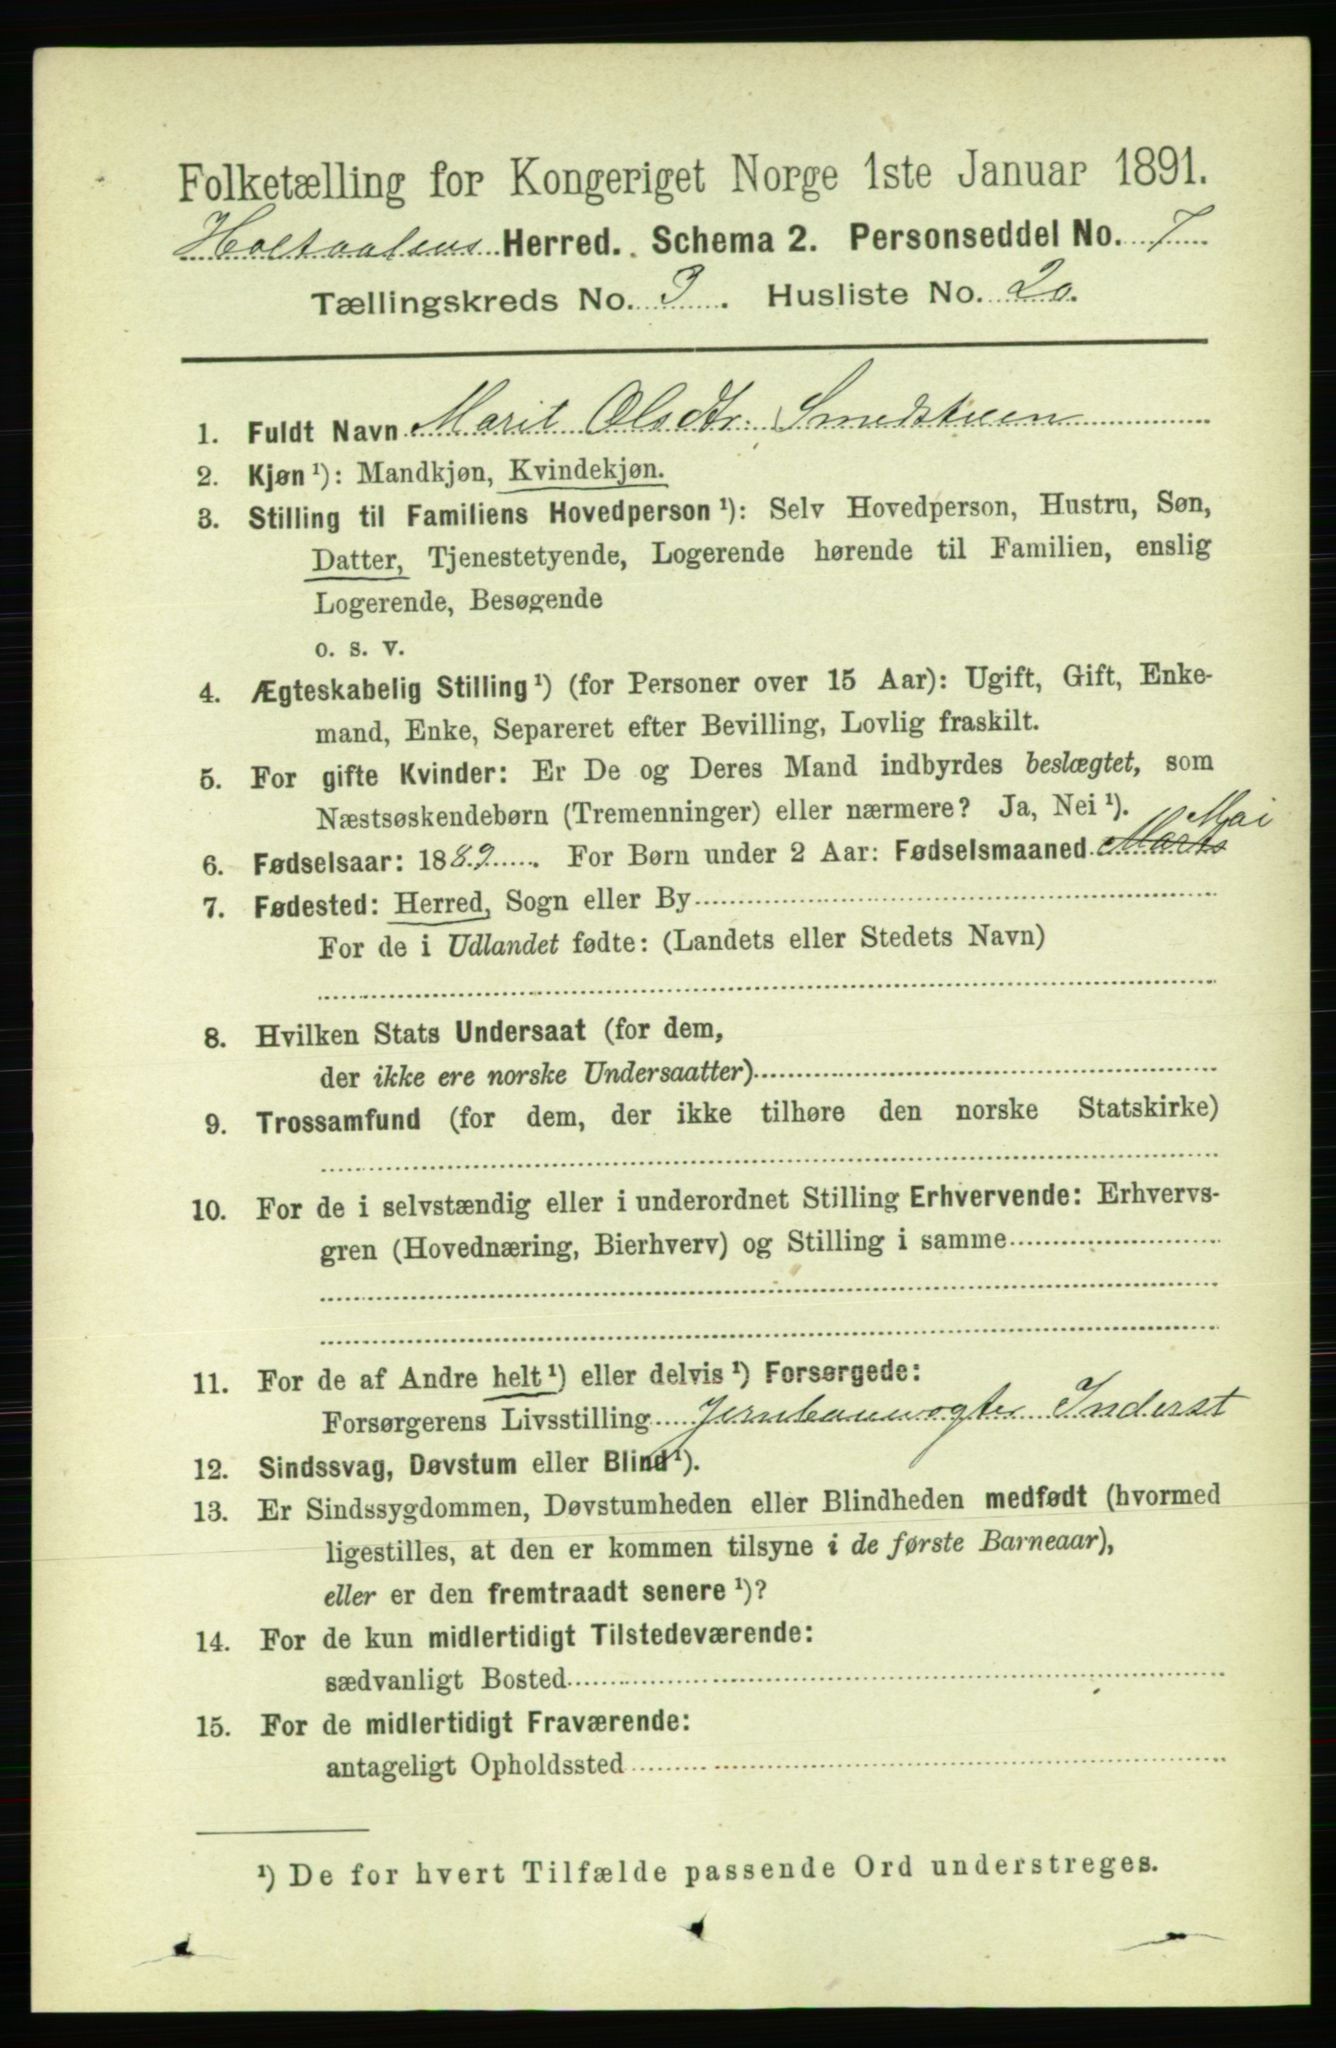 Folketælling for Kongeriget Norge 1ste Januar 1891.
Holtaalens Herred. Schema 2. Personseddel No. 7
Tællingskreds No. 3. Husliste No. 20.
1. Fuldt Navn Marit Olsdtr. Smedstuen
2. Kjøn ¹): Mandkjøn, Kvindekjøn.
3. Stilling til Familiens Hovedperson ¹): Selv Hovedperson, Hustru, Søn,
Datter, Tjenestetyende, Logerende hørende til Familien, enslig
Logerende, Besøgende
o. s. v.
4. Ægteskabelig Stilling ¹) (for Personer over 15 Aar): Ugift, Gift, Enke-
mand, Enke, Separeret efter Bevilling, Lovlig fraskilt.
5. For gifte Kvinder: Er De og Deres Mand indbyrdes beslægtet, som
Næstsøskendebørn (Tremenninger) eller nærmere? Ja, Nei ¹).
Mai
6. Fødselsaar: 1889. For Børn under 2 Aar: Fødselsmaaned Marts
7. Fødested: Herred, Sogn eller By
For de i Udlandet fødte: (Landets eller Stedets Navn)
8. Hvilken Stats Undersaat (for dem,
der ikke ere norske Undersaatter)
9. Trossamfund (for dem, der ikke tilhøre den norske Statskirke)
10. For de i selvstændig eller i underordnet Stilling Erhvervende: Erhvervs-
gren (Hovednæring, Bierhverv) og Stilling i samme
11. For de af Andre helt ¹) eller delvis ¹) Forsørgede:
Forsørgerens Livsstilling Jernbanevogter Inderst
12. Sindssvag, Døvstum eller Blind ¹).
13. Er Sindssygdommen, Døvstumheden eller Blindheden medfødt (hvormed
ligestilles, at den er kommen tilsyne i de første Barneaar),
eller er den fremtraadt senere ¹)?
14. For de kun midlertidigt Tilstedeværende:
sædvanligt Bosted
15. For de midlertidigt Fraværende:
antageligt Opholdssted
¹) De for hvert Tilfælde passende Ord understreges.